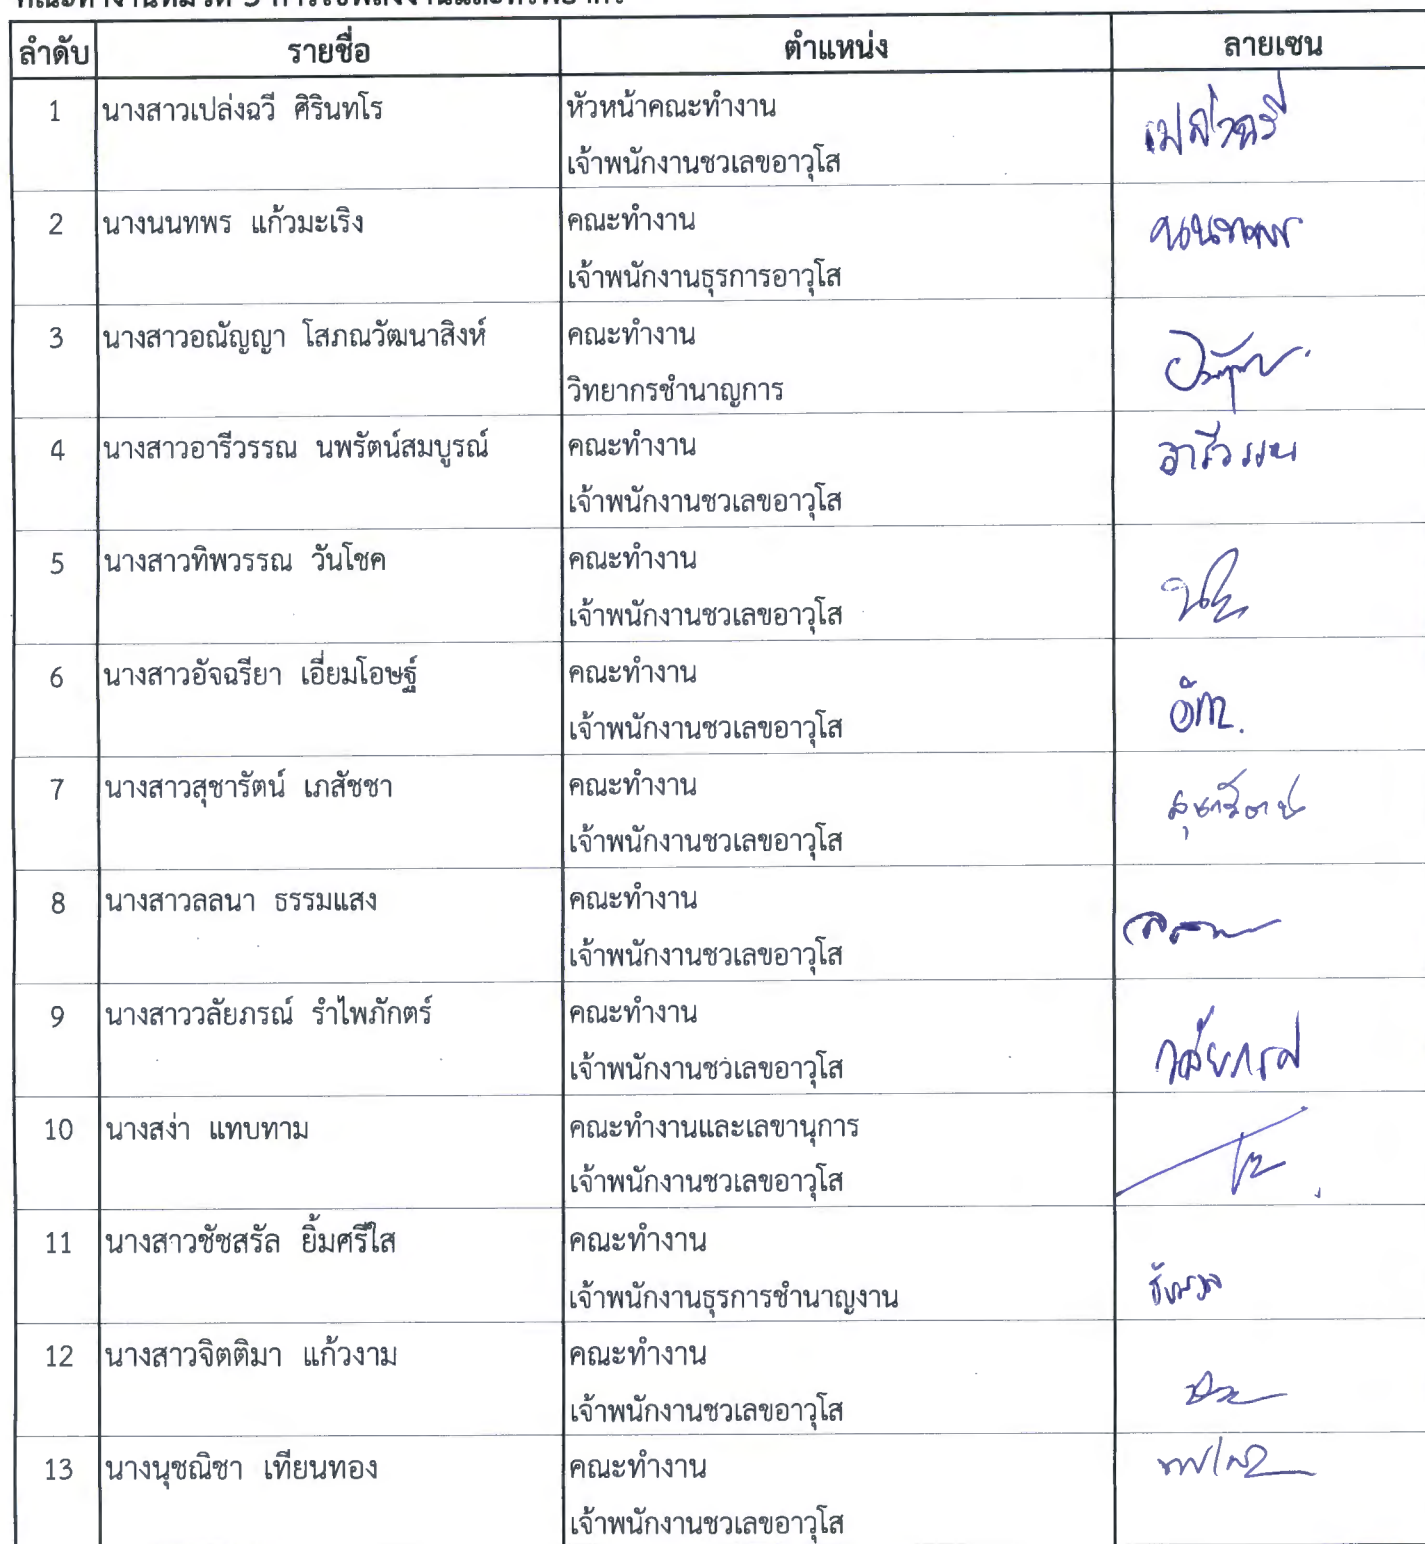 คณะทำงานหมวด 3 การใช้พลังงานและทรัพยากร
ลำดับ รายชื่อ ตำแหน่ง ลายเซน
1 นางสาวเปล่งฉวี ศิรินทโร หัวหน้าคณะทำงาน เปล่งฉวี
เจ้าพนักงานชวเลขอาวุโส
2 นางนนทพร แก้วมะเริง คณะทำงาน นนทพร
เจ้าพนักงานธุรการอาวุโส
3 นางสาวอณัญญา โสภณวัฒนาสิงห์ คณะทำงาน
วิทยากรชำนาญการ
4 นางสาวอารีวรรณ นพรัตน์สมบูรณ์ คณะทำงาน อารีวรรณ
เจ้าพนักงานชวเลขอาวุโส
5 นางสาวทิพวรรณ วันโชค คณะทำงาน
เจ้าพนักงานชวเลขอาวุโส
6 นางสาวอัจฉรียา เอี่ยมโอษฐ์ คณะทำงาน
เจ้าพนักงานชวเลขอาวุโส
7 นางสาวสุชารัตน์ เภสัชชา คณะทำงาน สุชารัตน์
เจ้าพนักงานชวเลขอาวุโส
8 นางสาวลลนา ธรรมแสง คณะทำงาน ลลนา
เจ้าพนักงานชวเลขอาวุโส
9 นางสาววลัยภรณ์ รำไพภักตร์ คณะทำงาน วลัยภรณ์
เจ้าพนักงานชวเลขอาวุโส
10 นางสง่า แทบทาม คณะทำงานและเลขานุการ
เจ้าพนักงานชวเลขอาวุโส
11 นางสาวชัชสรัล ยิ้มศรีใส คณะทำงาน
เจ้าพนักงานธุรการชำนาญงาน
12 นางสาวจิตติมา แก้วงาม คณะทำงาน
เจ้าพนักงานชวเลขอาวุโส
13 นางนุชณิชา เทียนทอง คณะทำงาน
เจ้าพนักงานชวเลขอาวุโส